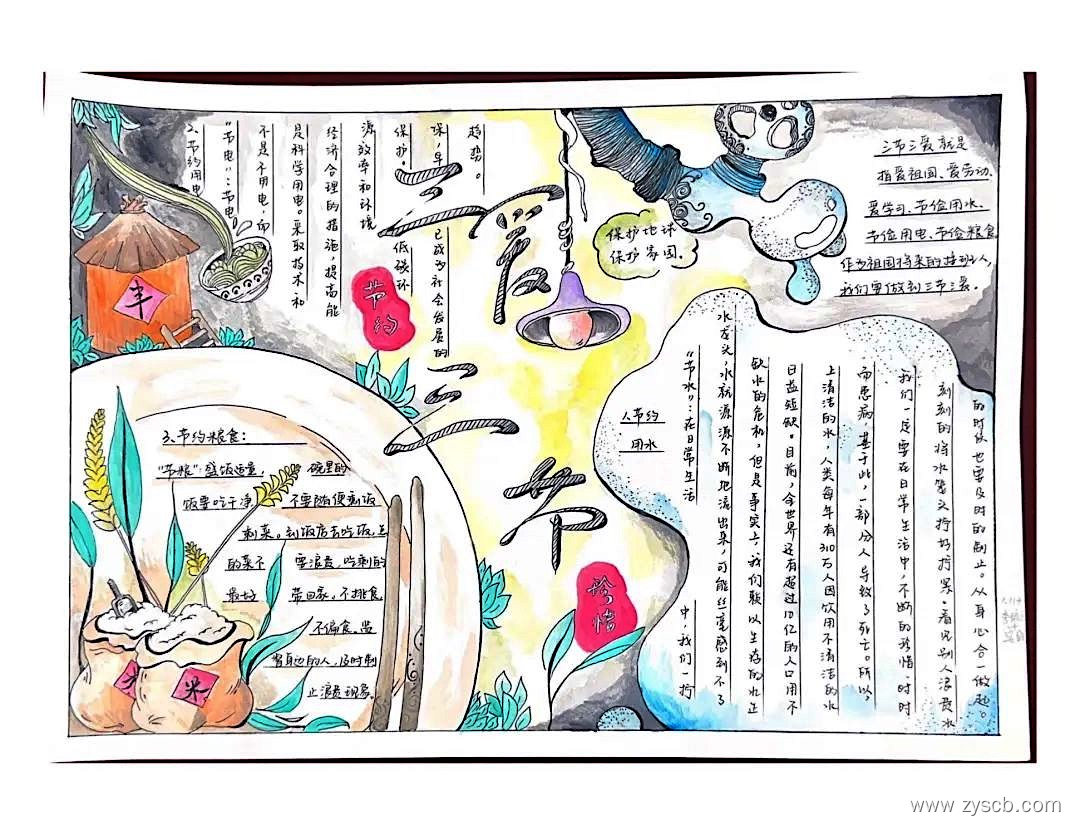 三爱
三节
2、节约用电
“节电”:节电
不是不用电,而
是科学用电。采取技术、和
经济合理的措施,提高能
源效率和环境
保护。 低碳环
保,早 已成为社会发展的
趋势。
节约
保护地球
保护家园。
三节三爱就是
指爱祖国、爱劳动、
爱学习、节俭用水、
节俭用电、节俭粮食
作为祖国将来的接班人,
我们要做到三节三爱。
丰
3、节约粮食:
“节粮”:盛饭适量, 碗里的
饭要吃干净 不要随便剩饭
剩菜。到饭店去吃饭,点
的菜不 要浪费,吃剩的
最好 带回家。不挑食
不偏食。监
当身边的人,及时制
止浪费现象。
米
米
珍惜
1、节约
用水
“节水”:在日常生活 中,我们一拧
水龙头,水就源源不断地流出来,可能丝毫感到不了
缺水的危机,但是事实上,我们赖以生存的水正
日益短缺。目前,全世界还有超过10亿的人口用不
上清洁的水,人类每年有310万人因饮用不清洁的水
而患病 基于此,一部份人导致了死亡。所以,
我们一定要在日常生活中,不断的珍惜,时时
刻刻的将水笼头拧好拧紧,看见别人浪费水
的时候也要及时的制止。从身心合一做起。
www.zyscb.com